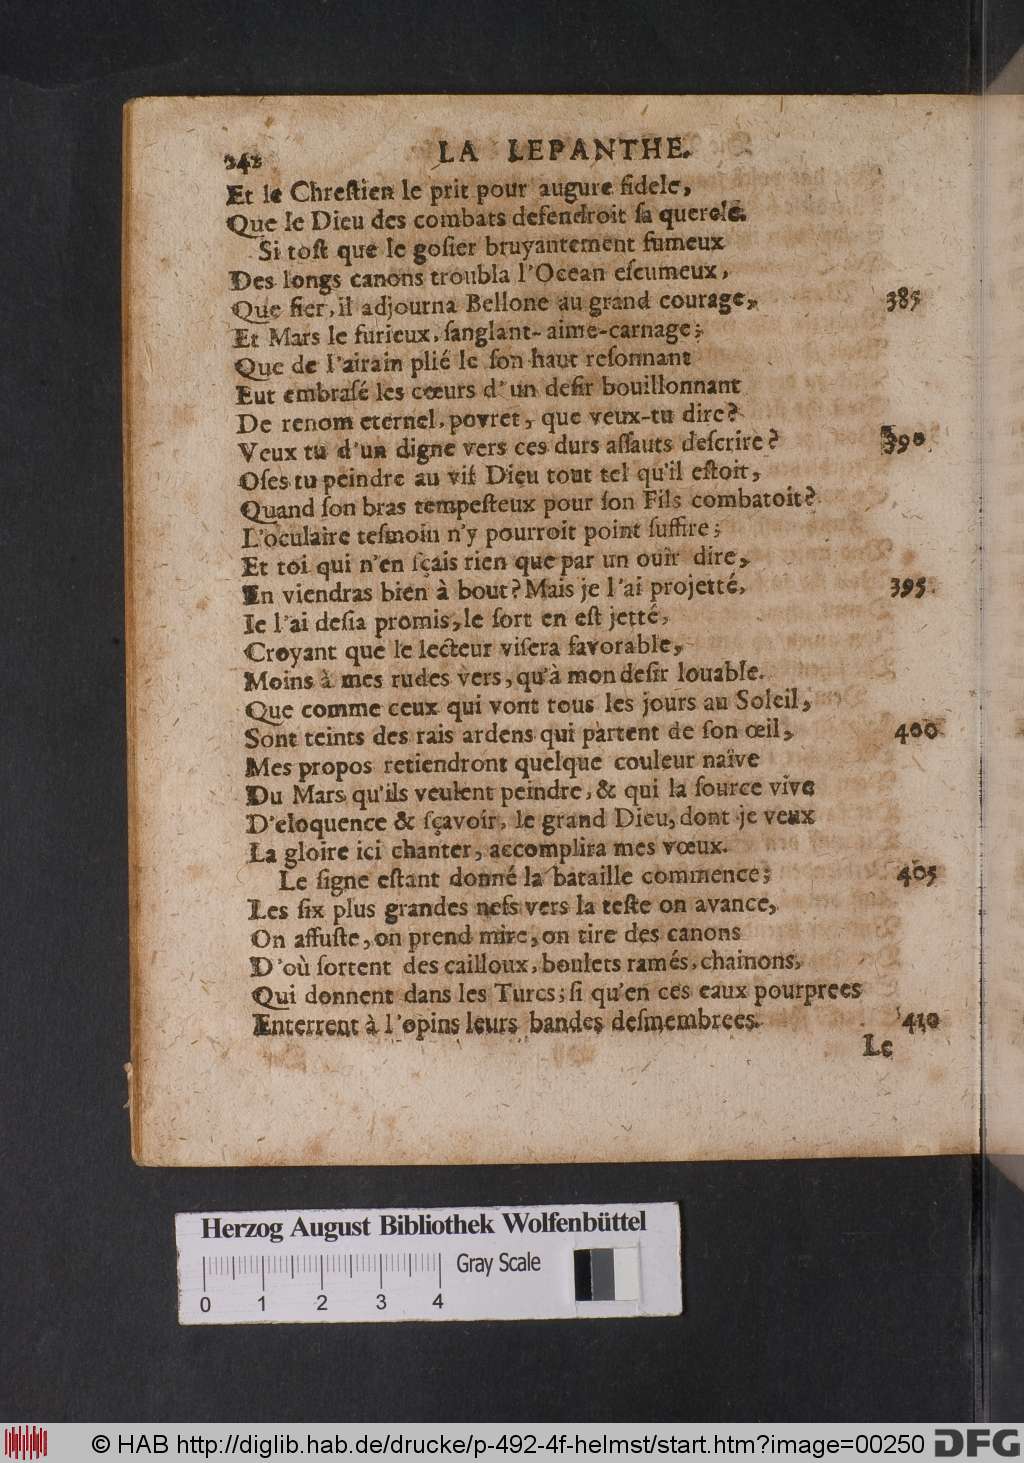 242 LA LEPANTHE.
Et le Chreſtien le prit pour augure fidele,
Que le Dieu des combats defendroit ſa querele.
Si toſt que le goſier bruyantement fumeux
Des longs canons troubla l'Ocean eſcumeux,
Que fier, il adjourna Bellone au grand courage, 385
Et Mars le furieux, ſanglant-aime-carnage;
Que de l'airain plié le ſon haut reſonnant
Eut embraſé les cœurs d'un deſir bouillonnant
De renom eternel, povret, que veux-tu dire?
Veux tu d'un digne vers ces durs aſſauts deſcrire? 390
Oſes tu peindre au vif Dieu tout tel qu'il eſtoit,
Quand ſon bras tempeſteux pour ſon Fils combatoit?
L'oculaire teſmoin n'y pourroit point ſuffire;
Et toi qui n'en ſçais rien que par un ouïr dire,
En viendras bien à bout? Mais je l'ai projetté, 395
Ie l'ai deſia promis, le ſort en eſt jetté,
Croyant que le lecteur viſera favorable,
Moins à mes rudes vers, qu'à mon deſir louable.
Que comme ceux qui vont tous les jours au Soleil,
Sont teints des rais ardens qui partent de ſon œil, 400
Mes propos retiendront quelque couleur naïve
Du Mars qu'ils veulent peindre, & qui la ſource vive
D'eloquence & ſçavoir, le grand Dieu, dont je veux
La gloire ici chanter, accomplira mes vœux.
Le ſigne eſtant donné la bataille commence; 405
Les ſix plus grandes nefs vers la teſte on avance,
On affuſte, on prend mire, on tire des canons
D'où ſortent des cailloux, boulets ramés, chainons,
Qui donnent dans les Turcs; ſi qu'en ces eaux pourprees
Enterrent à l'opins leurs bandes deſmembrees. 410
Le
Herzog August Bibliothek Wolfenbüttel
Gray Scale
0 1 2 3 4
© HAB http://diglib.hab.de/drucke/p-492-4f-helmst/start.htm?image=00250 DFG